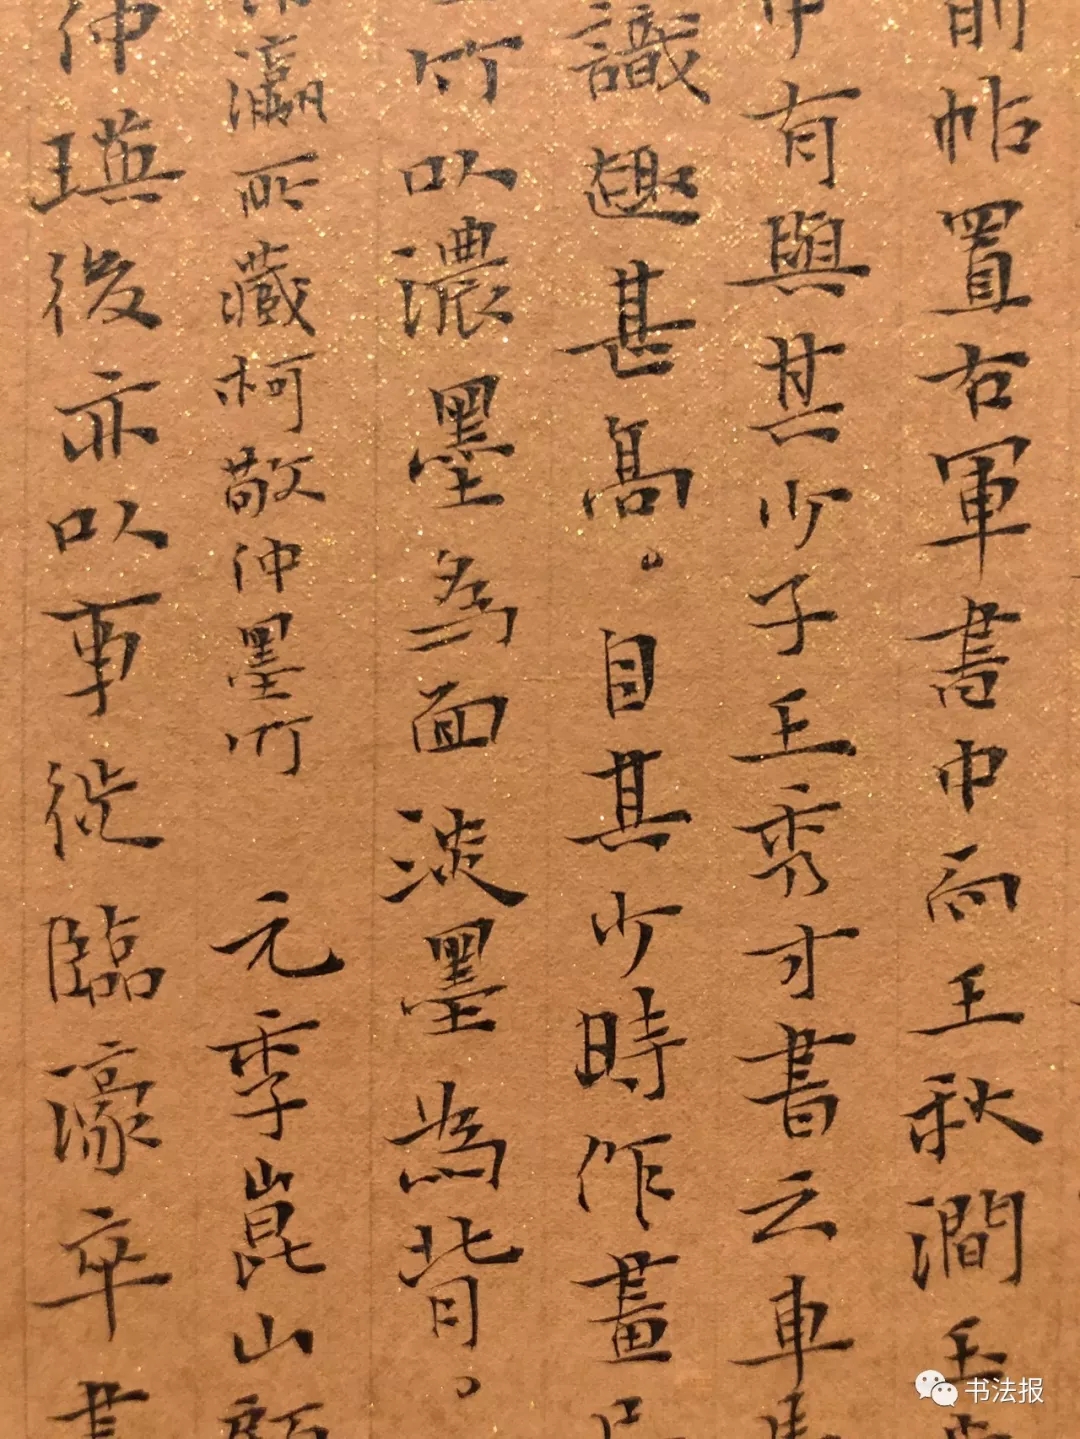 前帖置右軍書中而王秋澗玉
中有與其少子王秀才書云車馬
識趣甚高。自其少時作畫
竹以濃墨為面淡墨為背。
瀛所藏柯敬仲墨竹 元季崑山顧
仲瑛後亦以事徙臨濠卒其
书法报